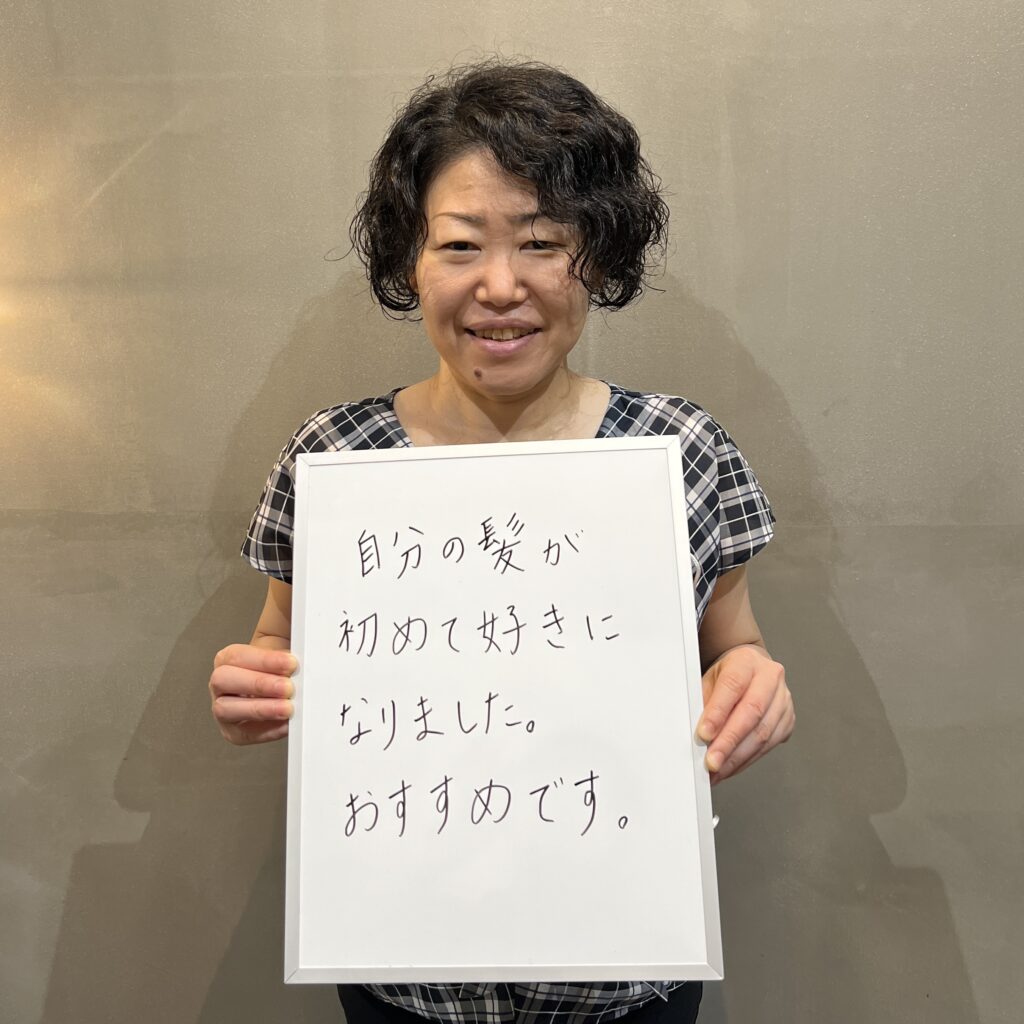 自分の髪が
初めて好きに
なりました。
おすすめです。